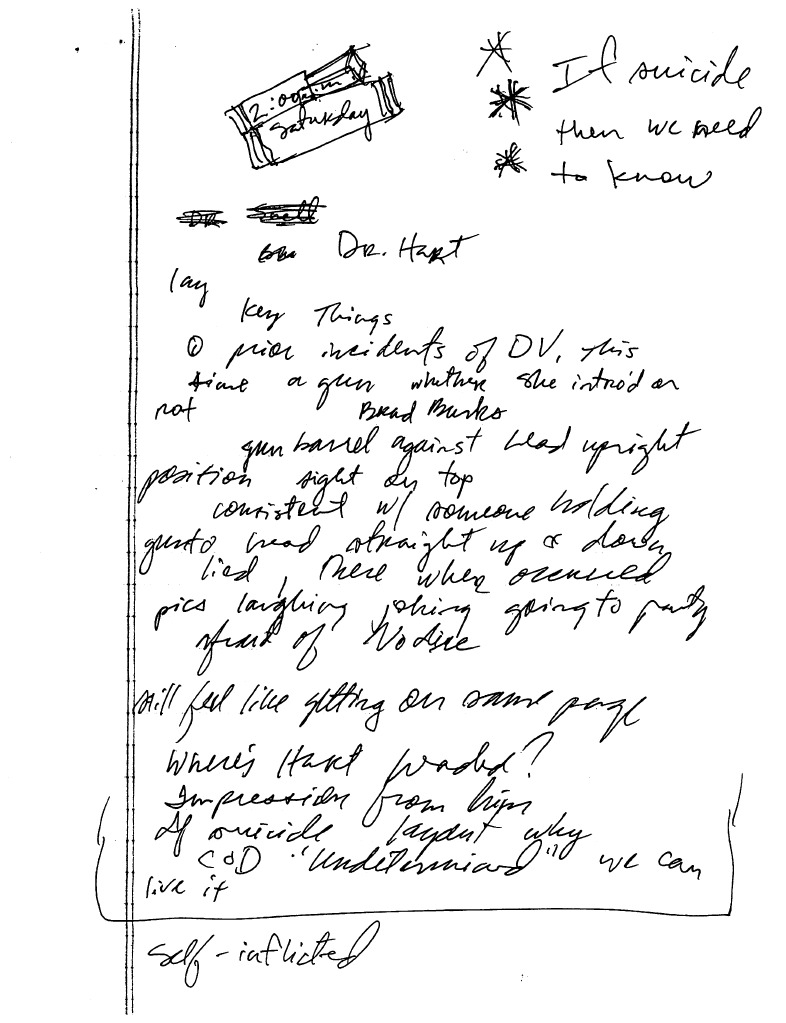 2:00 p.m.
Saturday
* If suicide
* then we need
* to know
Dr. Hart
lay
Key Things
① prior incidents of DV, this
time a gun whether she intro'd or
not
gun barrel against head upright
position sight on top
consistent w/ someone holding
gun to head straight up or down
lied, there when occurred
pics laughing joking going to party
afraid of
still feel like getting on same page
Where's Hart headed?
Impression from him
If suicide layout why
COD "Undetermined" we can
live if
self-inflicted